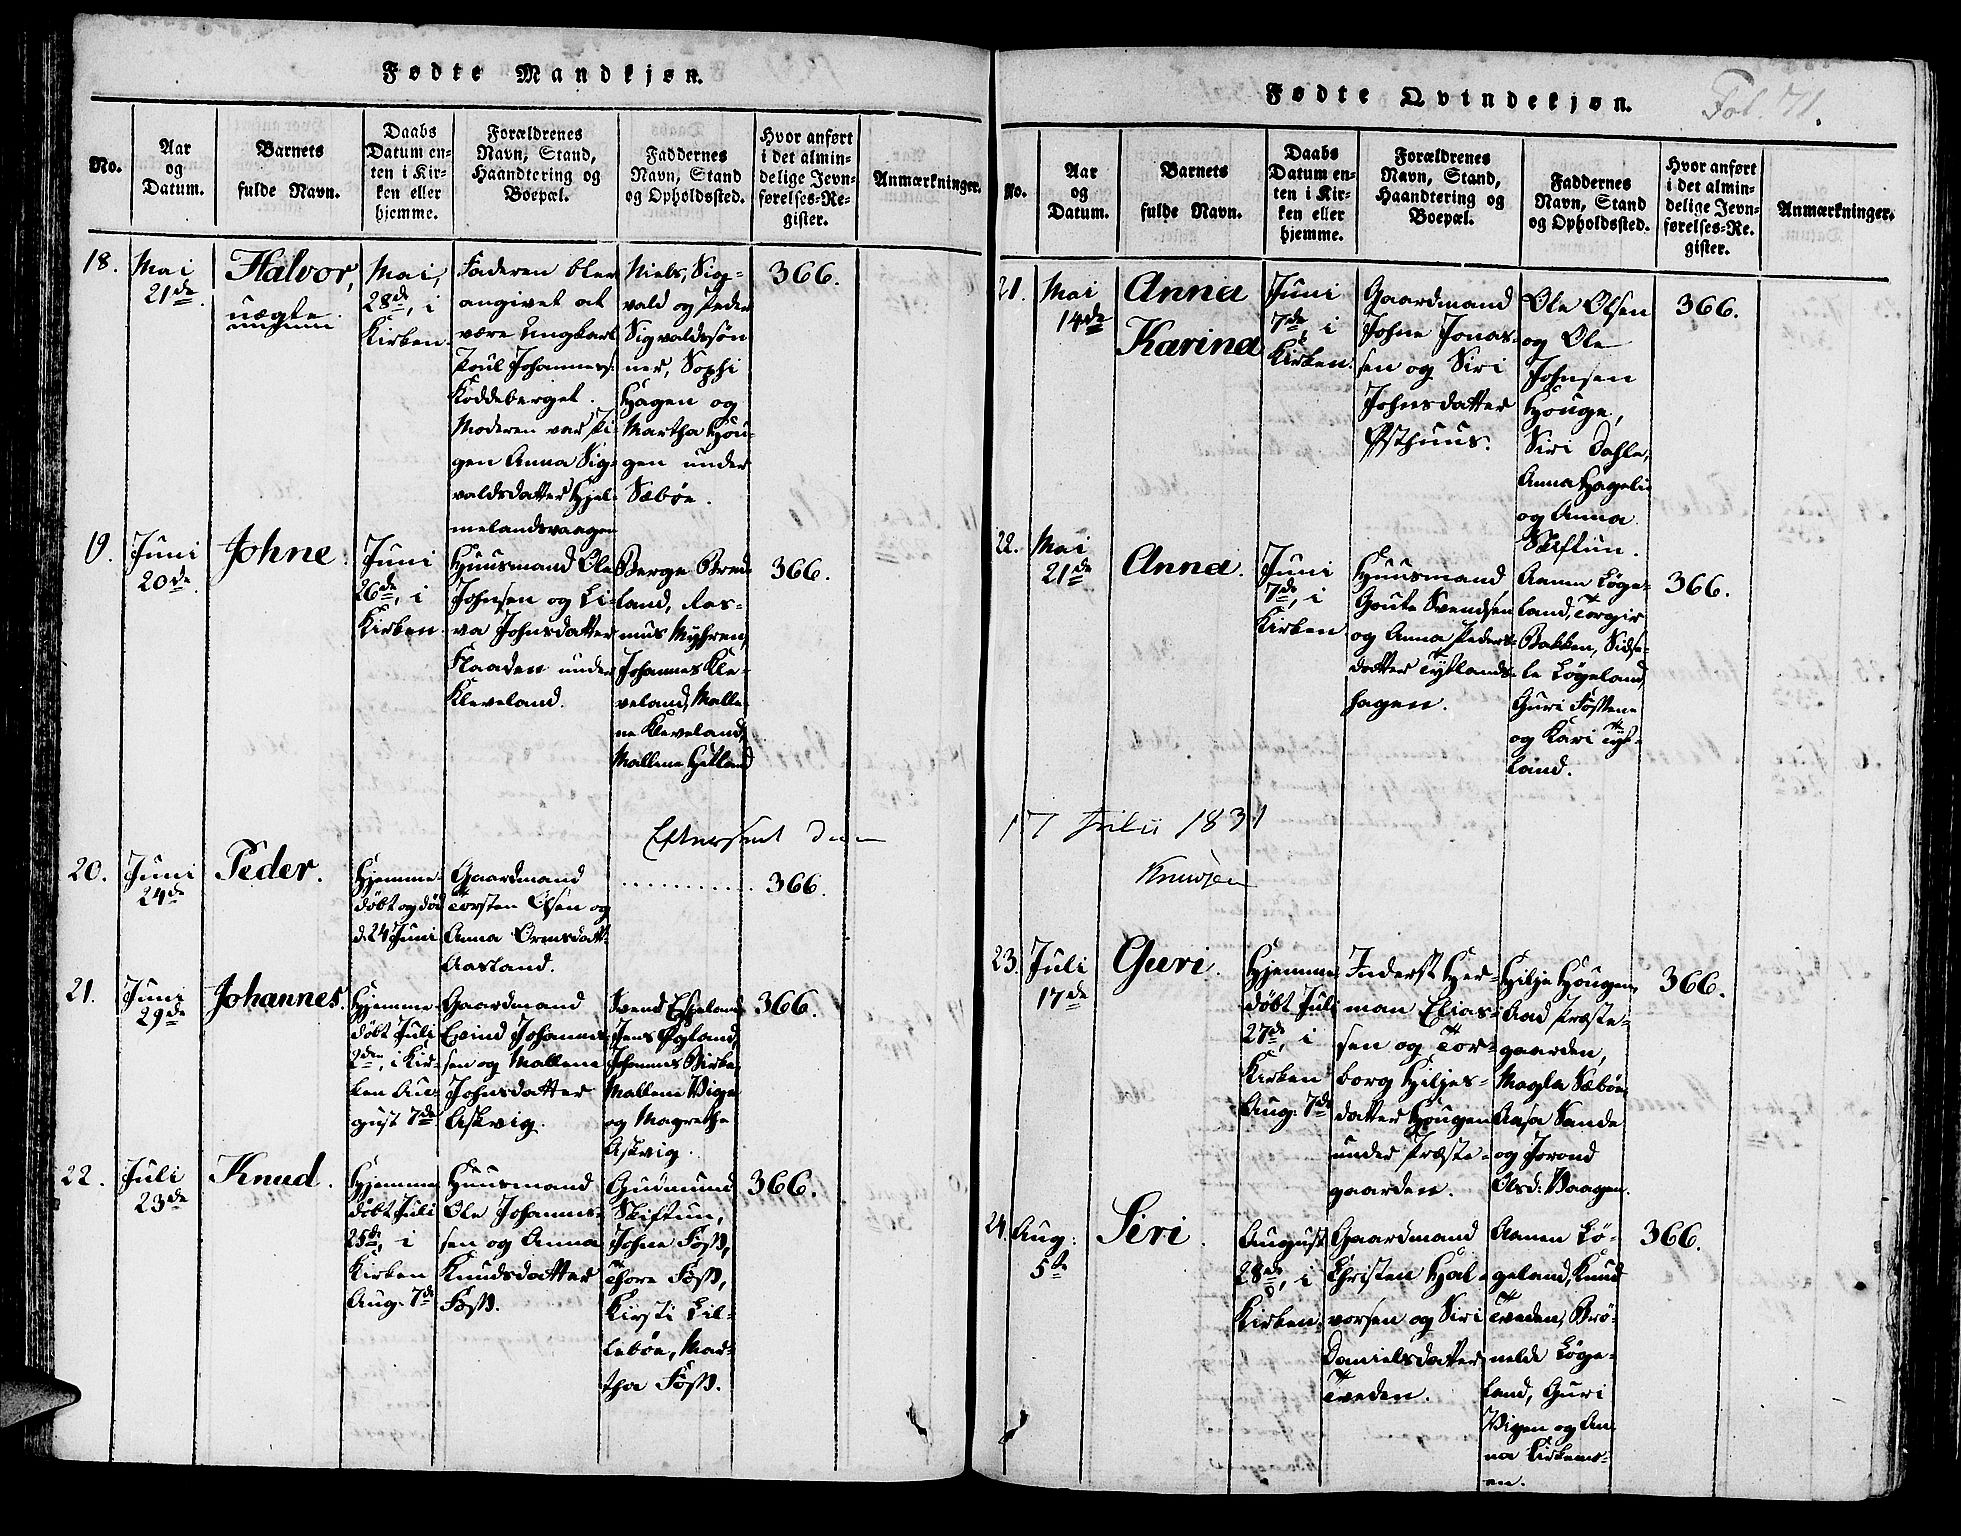 Fødte Mandkjøn.
No.
Aar
og
Datum.
Barnets
fulde Navn.
Daabs
Datum en-
ten i Kir-
ken eller
hjemme.
Forældrenes
Navn, Stand,
Haandtering og
Boepæl.
Faddernes
Navn, Stand
og Opholdssted.
Hvor anført
i det almin-
delige Jevn-
førelses-Re-
gister.
Anmærkninger.
18.
Mai
21de
Halvor,
uægte
Mai,
28de, i
Kirken.
Faderen blev
angivet at
være Ungkarl
Poul Johanness:
Koddeberget.
Moderen var Pi-
gen Anna Sig-
valdsdatter Hjel-
melandsvaagen
Niels, Sig-
vald og Peder
Sigvaldssøn
ner, Sophi
Hagen og
Martha Hou-
gen under
Sæbøe.
366.
19.
Juni
20de
Johne.
Juni
26de, i
Kirken.
Huusmand Ole
Johnsen og Li-
va Johnsdatter
Flaaden under
Kleveland.
Berge Bred-
land, Ras-
mus Myhren,
Johannes Kle-
veland, Malle-
ne Kleveland,
Mallene Hetland
366.
Efterseet den
20.
Juni
24de
Peder.
Hjemme-
døbt og død
d. 24 Juni
Gaardmand
Torsten Olsen og
Anna Ormsdatt:
Aasland.
............
366.
21.
Juni
29de
Johannes.
Hjemme-
døbt Juli
2den, i Kir-
ken Au-
gust 7de
Gaardmand
Evind Johannes-
sen og Mallene
Johnsdatter
Askvig.
Svend Espeland
Jens Øgland,
Johannes Birke,
Mallene Vige
og Magrethe
Askvig.
366.
22.
Juli
23de
Knud.
Hjemme-
døbt Juli
25de, i
Kirken
Aug. 7de
Huusmand
Ole Johannes-
sen og Anna
Knudsdatter
Foss.
Gudmund
Skiftun,
Johne Foss,
Thore Foss,
Kirsti Lil-
lebøe, Mar-
tha Foss.
366.
Fødte Qvindekjøn.
Fol. 71.
No.
Aar
og
Datum.
Barnets
fulde Navn.
Daabs
Datum en-
ten i Kir-
ken eller
hjemme.
Forældrenes
Navn, Stand,
Haandtering og
Boepæl.
Faddernes
Navn, Stand
og Opholdssted.
Hvor anført
i det almin-
delige Jevn-
førelses-Re-
gister.
Anmærkninger.
21.
Mai
14de
Anna
Karina
Juni
7de, i
Kirken.
Gaardmand
Johne Jonas-
sen og Siri
Johnsdatter
Østhuus.
Ole Olsen
og Ole
Johnsen
Houge,
Siri Dahle,
Anna Hagelie
og Anna
Skiftun.
366.
22.
Mai
21de
Anna.
Juni
7de, i
Kirken
Huusmand
Goute Svendsen
og Anna Peders-
datter Tytlands-
hagen.
Aamen Løge-
land, Torgir
Bakken, Sidse-
le Løgeland,
Guri Fostene
og Kari Tyt-
land.
366.
17 Julii 1831
Knudsen
23.
Juli
17de
Guri.
Hjemme-
døbt Juli
27de, i
Kirken
Aug: 7de
Inderst Her-
man Elias-
sen og Tor-
borg Hiljes-
datter Hougen
under Præste-
gaarden.
Hilje Hougen,
Aad Præste-
gaarden,
Magla Sæbøe,
Aasa Sande
og Jorond
Olsd: Vaagen.
366.
24.
Aug:
5te
Siri.
August
28de, i
Kirken.
Gaardmand
Christen Hal-
vorsen og Siri
Danielsdatter
Tveden.
Aamen Lø-
geland, Knud
Tveden, Brø-
nelde Løge-
land, Guri
Vigen og An-
na Kirkemo-
en.
366.